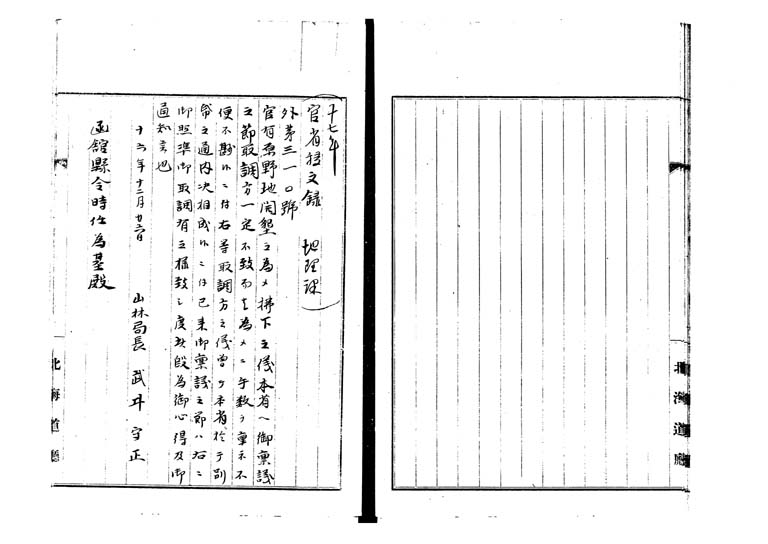 十七年
官省指文録 地理課
外第三一〇號
官有原野地開墾之為メ拂下之儀本省ヘ御稟議
之節取調方一定不致為メニ手数ヲ重子不
便不尠候ニ付右等取調方之儀曽テ本省於テ別
冊之通内決相成候ニ付已来御稟議之節ハ右ニ
御照準御取調有之様致シ度此段為御心得及御
通知候也
十六年十二月廿六日
山林局長 武井守正
函館縣令時任為基殿
北海道廳
北海道廳